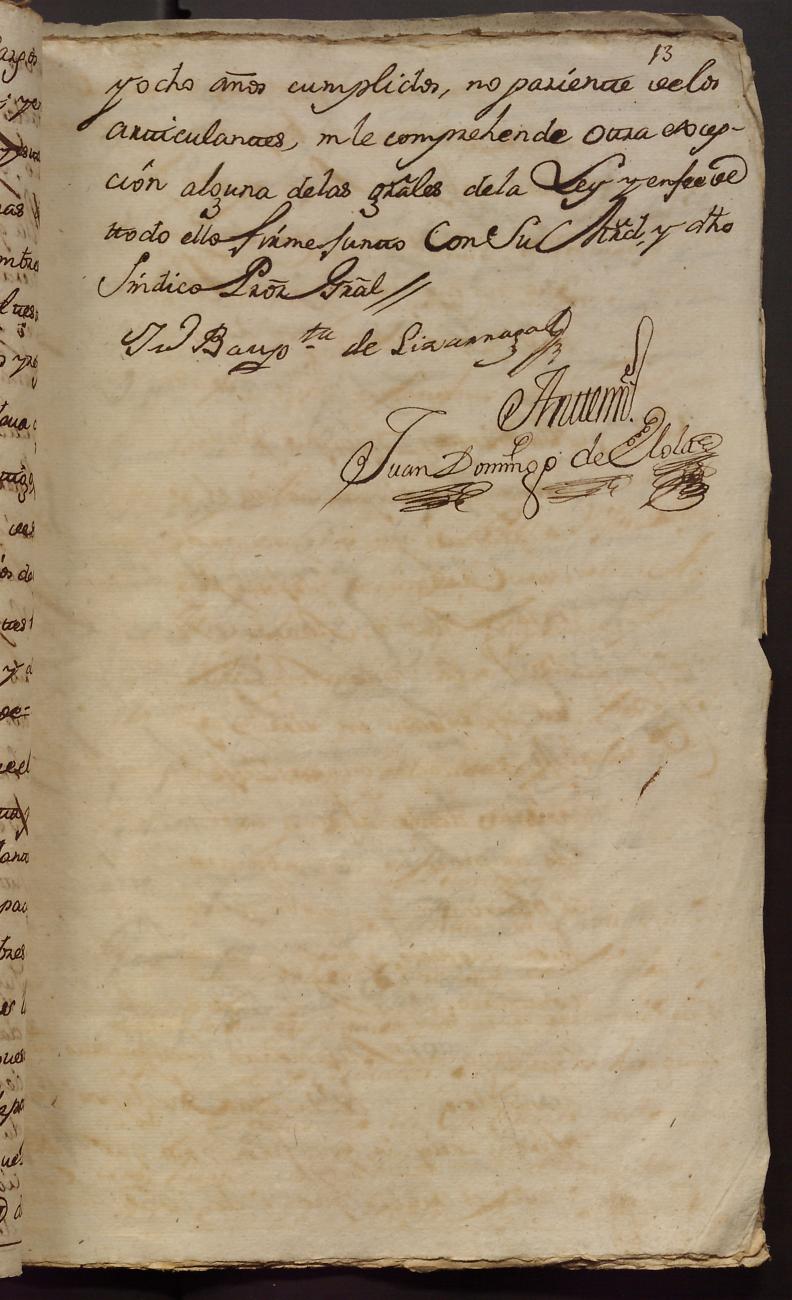 13
y ocho años cumplidos, no pariente de los
articulantes, ni le comprehende otra excep-
ción alguna de las grãles de la Ley y en fee de
todo ello firme junto con Su Mrd, y dho
Síndico Pror Gral //
Baupta de Lizarraga
Antemi
Juan Domingo de Elola